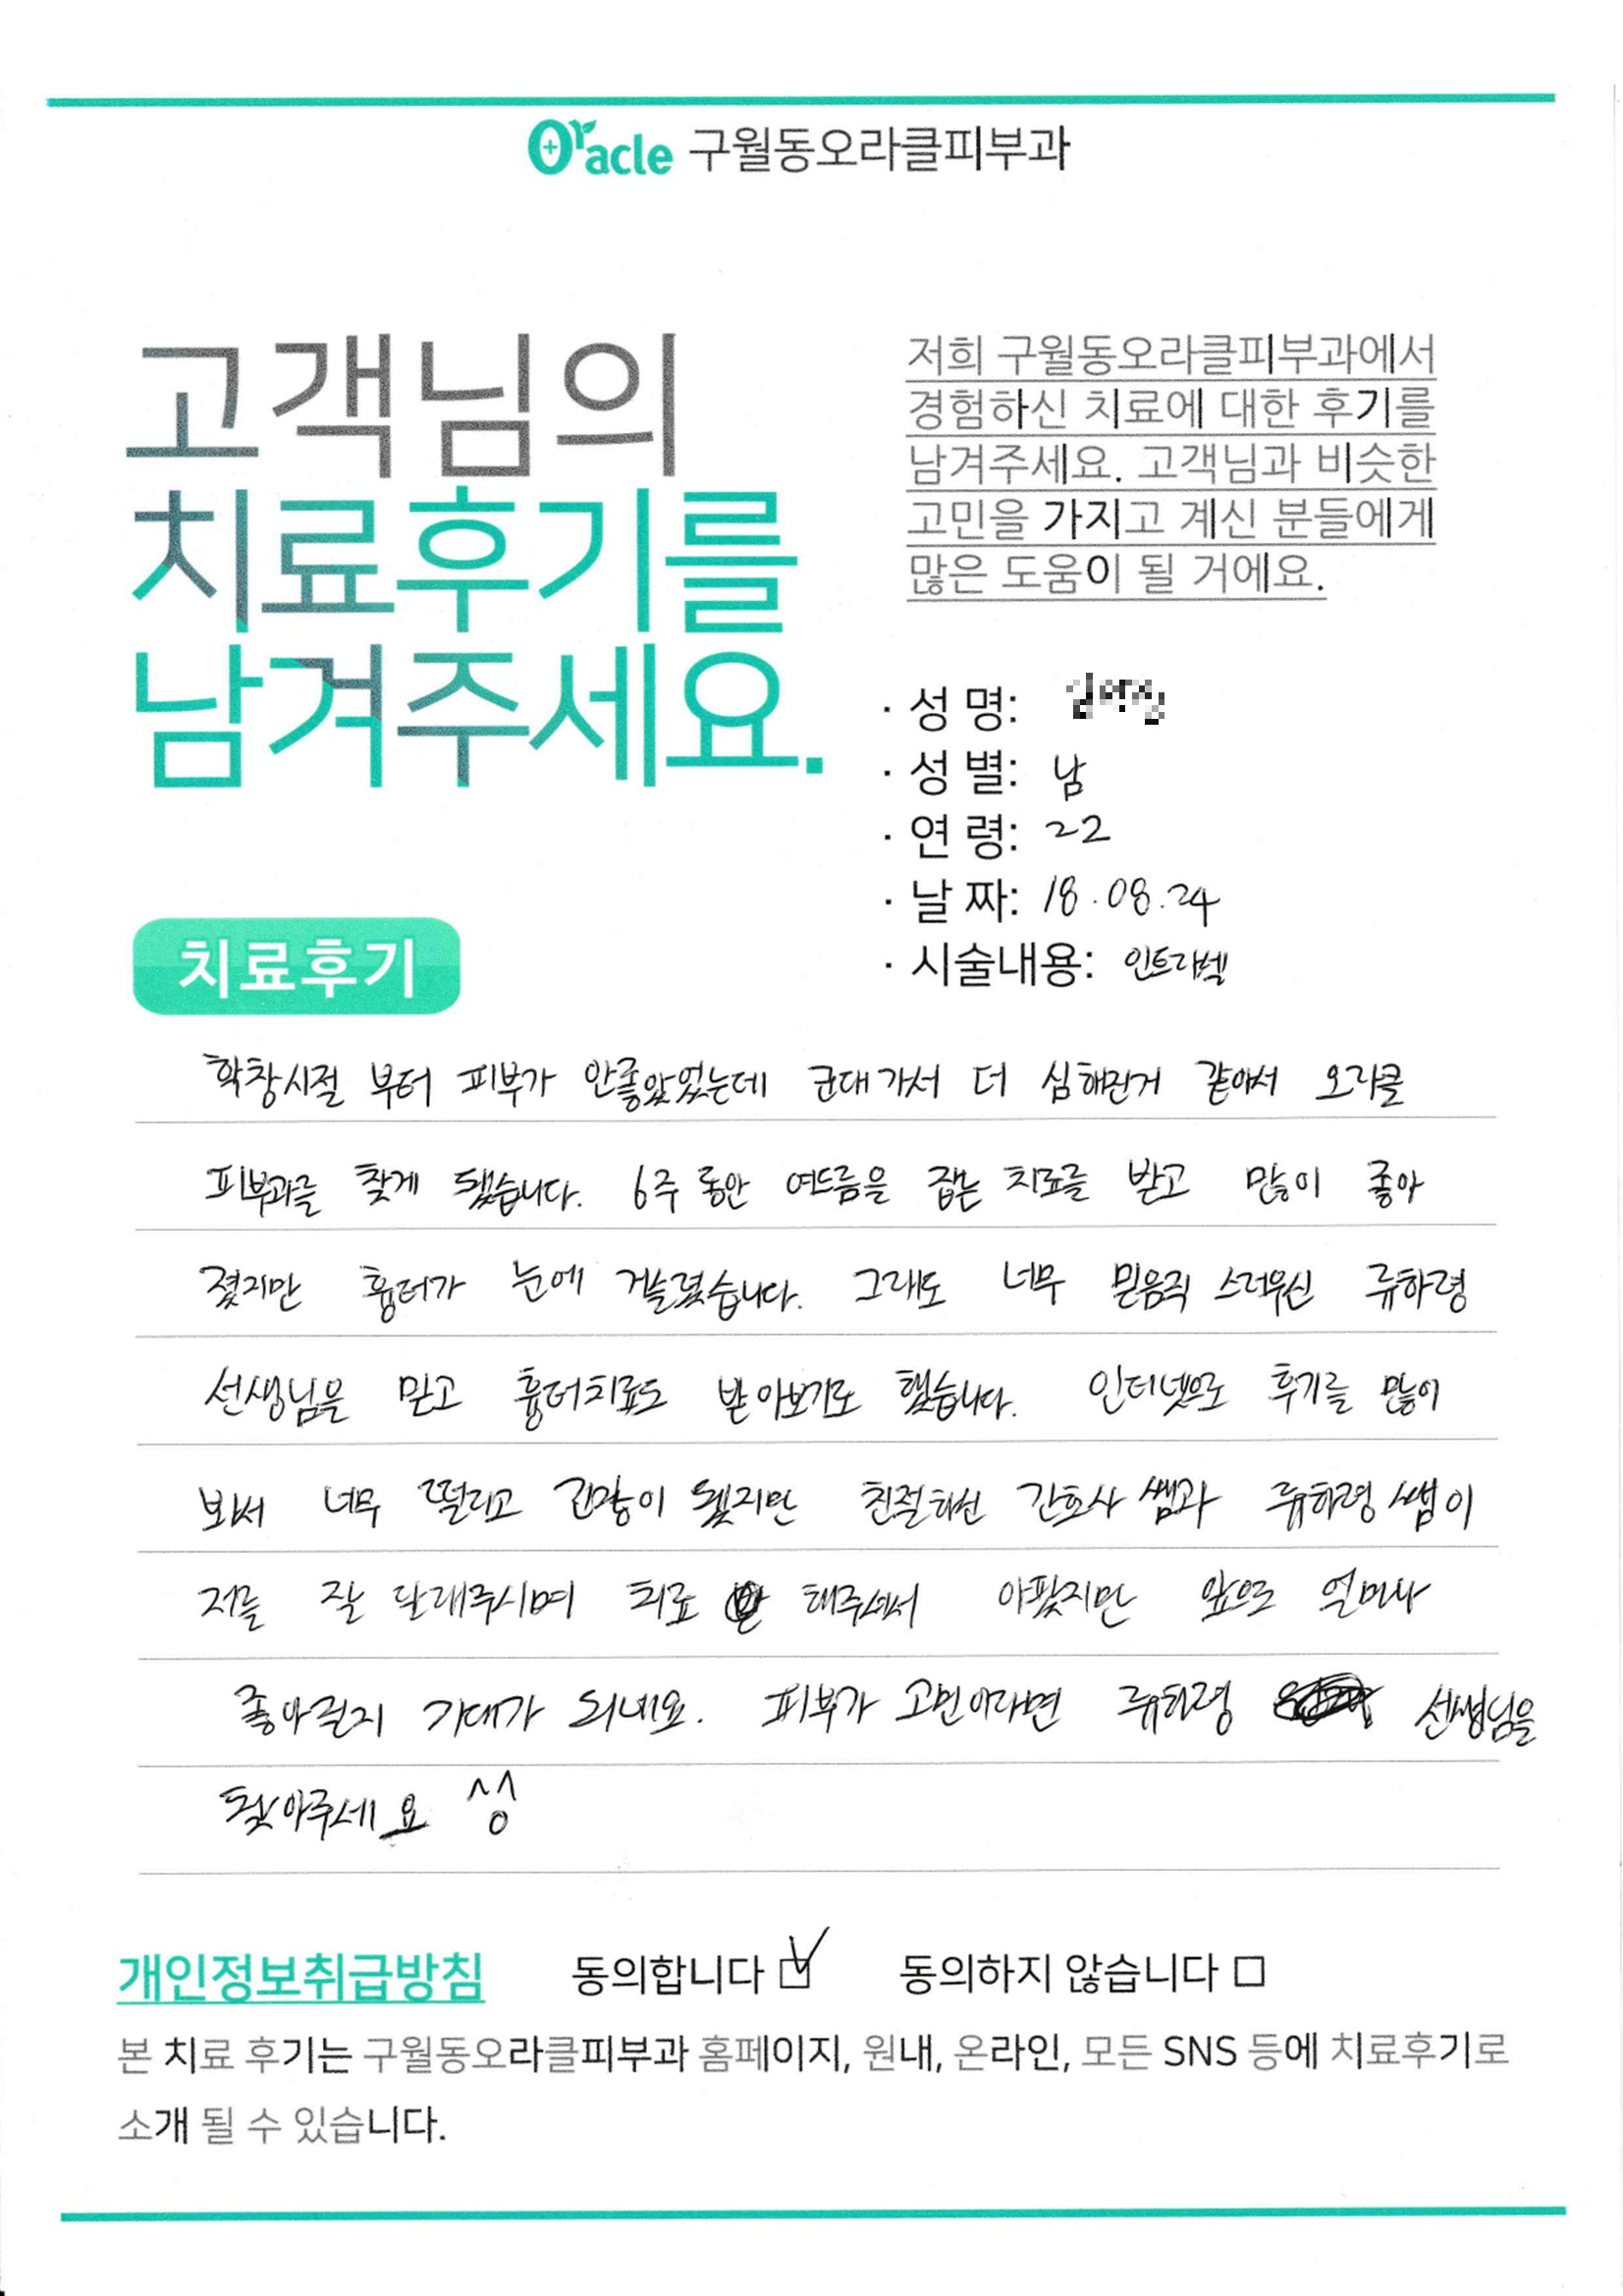 Oracle 구월동오라클피부과
고객님의
치료후기를
남겨주세요.
저희 구월동오라클피부과에서
경험하신 치료에 대한 후기를
남겨주세요. 고객님과 비슷한
고민을 가지고 계신 분들에게
많은 도움이 될 거에요.
· 성 명:
· 성 별: 남
· 연 령: 22
· 날 짜: 18.08.24
· 시술내용: 인트라셀
치료후기
학창시절 부터 피부가 안좋았었는데 군대가서 더 심해진거 같아서 오라클
피부과를 찾게 됐습니다. 6주 동안 여드름을 잡는 치료를 받고 많이 좋아
졌지만 흉터가 눈에 거슬렸습니다. 그래도 너무 믿음직 스러우신 류하령
선생님을 믿고 흉터치료도 받아보기로 했습니다. 인터넷으로 후기를 많이
봐서 너무 떨리고 긴장이 됐지만 친절하신 간호사 쌤과 류하령 쌤이
저를 잘 달래주시며 치료 해주셔서 아팠지만 앞으로 얼마나
좋아질지 기대가 되네요. 피부가 고민이라면 류하령 선생님을
찾아주세요 ^^
개인정보취급방침 동의합니다 ☑ 동의하지 않습니다 □
본 치료 후기는 구월동오라클피부과 홈페이지, 원내, 온라인, 모든 SNS 등에 치료후기로
소개 될 수 있습니다.